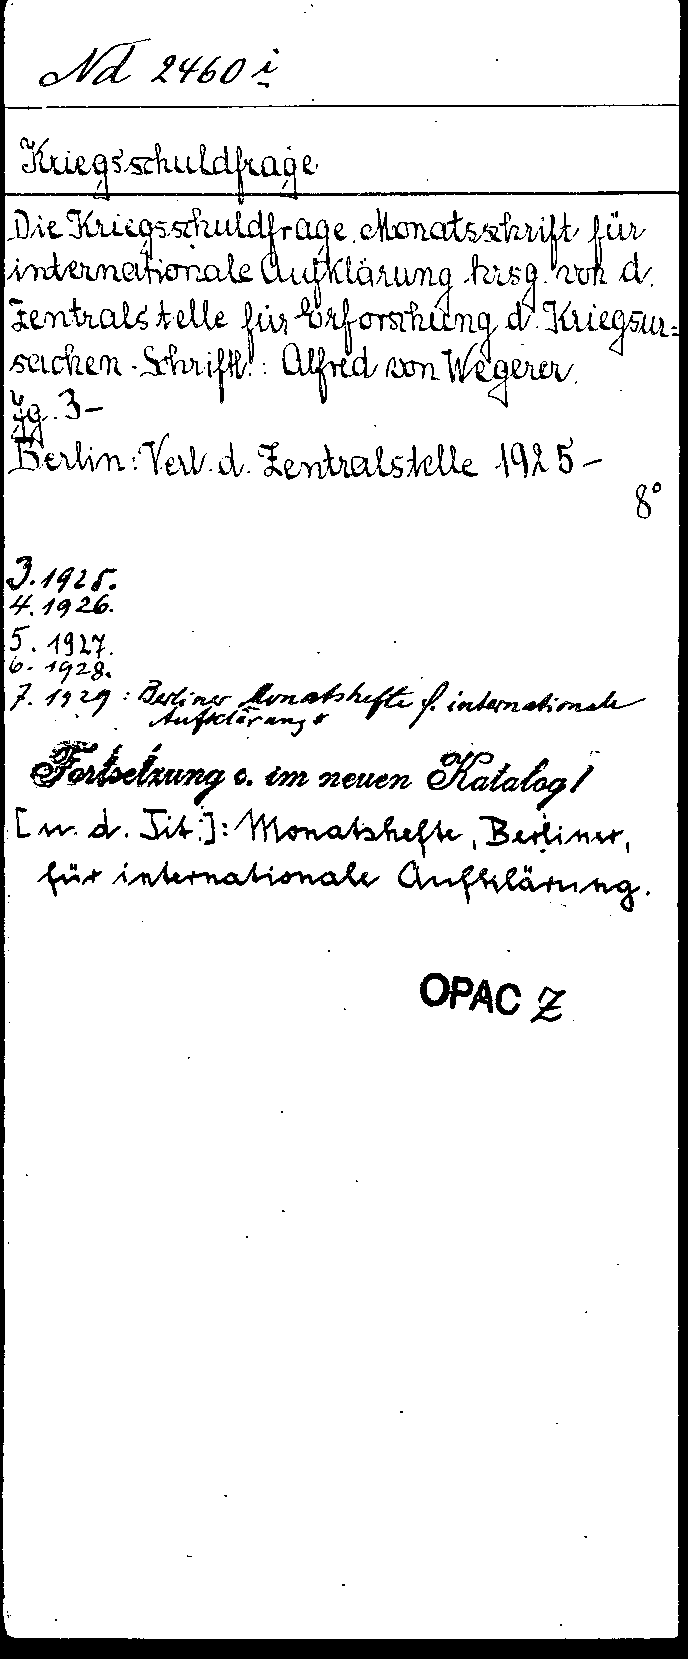 Nd 2460 i
Kriegsschuldfrage
Die Kriegsschuldfrage. Monatsschrift für
internationale Aufklärung hrsg. von d.
Zentralstelle für Erforschung d. Kriegsur=
sachen. Schriftl.: Alfred von Wegerer.
Jg. 3-
Berlin: Verl. d. Zentralstelle 1925-
8°
3. 1925.
4. 1926.
5. 1927.
6. 1928.
7. 1929: Berliner Monatshefte f. internationale
Aufklärung
Fortsetzung s. im neuen Katalog!
[u. d. Tit.]: Monatshefte, Berliner,
für internationale Aufklärung.
OPAC Z